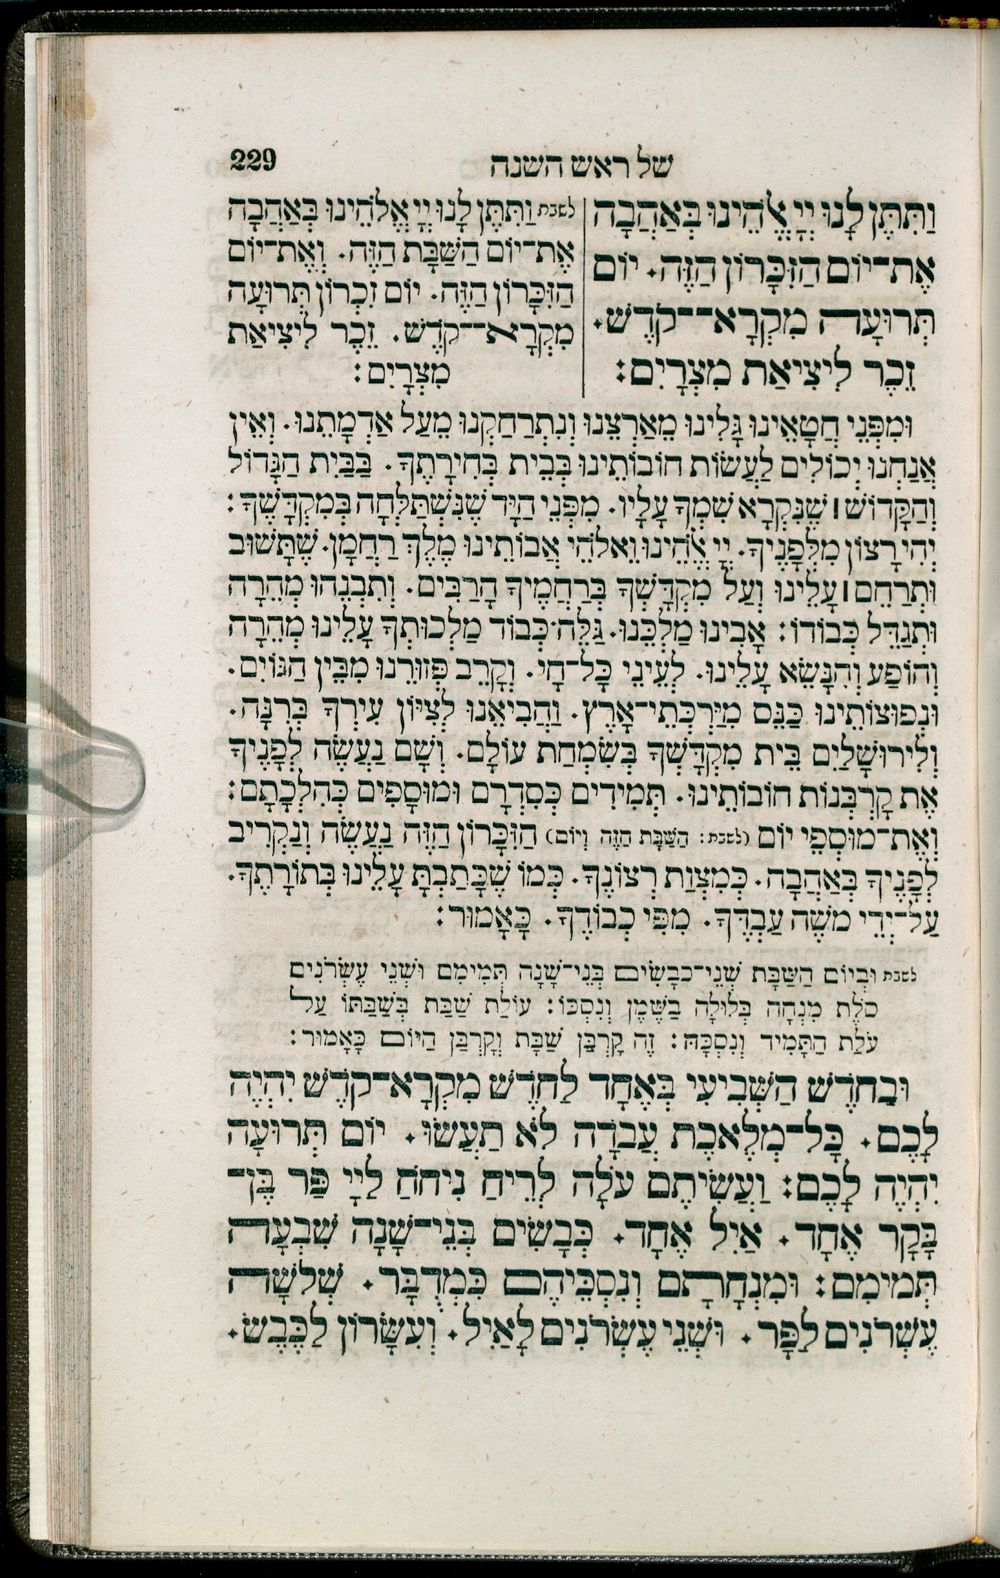 של ראש השנה 229
וַתִּתֶּן לָנוּ יְיָ אֱלֹהֵינוּ בְּאַהֲבָה
אֶת־יוֹם הַזִּכָּרוֹן הַזֶּה. יוֹם
תְּרוּעָה מִקְרָא־קֹדֶשׁ.
זֵכֶר לִיצִיאַת מִצְרָיִם:
לשבת וַתִּתֶּן לָנוּ יְיָ אֱלֹהֵינוּ בְּאַהֲבָה
אֶת־יוֹם הַשַּׁבָּת הַזֶּה. וְאֶת־יוֹם
הַזִּכָּרוֹן הַזֶּה. יוֹם זִכְרוֹן תְּרוּעָה
מִקְרָא־קֹדֶשׁ. זֵכֶר לִיצִיאַת
מִצְרָיִם:
וּמִפְּנֵי חֲטָאֵינוּ גָּלִינוּ מֵאַרְצֵנוּ וְנִתְרַחַקְנוּ מֵעַל אַדְמָתֵנוּ. וְאֵין
אֲנַחְנוּ יְכוֹלִים לַעֲשׂוֹת חוֹבוֹתֵינוּ בְּבֵית בְּחִירָתֶךָ. בַּבַּיִת הַגָּדוֹל
וְהַקָּדוֹשׁ׀ שֶׁנִּקְרָא שִׁמְךָ עָלָיו. מִפְּנֵי הַיָּד שֶׁנִּשְׁתַּלְּחָה בְּמִקְדָּשֶׁךָ:
יְהִי רָצוֹן מִלְּפָנֶיךָ. יְיָ אֱלֹהֵינוּ וֵאלֹהֵי אֲבוֹתֵינוּ מֶלֶךְ רַחֲמָן. שֶׁתָּשׁוּב
וּתְרַחֵם׀ עָלֵינוּ וְעַל מִקְדָּשְׁךָ בְּרַחֲמֶיךָ הָרַבִּים. וְתִבְנֵהוּ מְהֵרָה
וּתְגַדֵּל כְּבוֹדוֹ: אָבִינוּ מַלְכֵּנוּ. גַּלֵּה כְּבוֹד מַלְכוּתְךָ עָלֵינוּ מְהֵרָה
וְהוֹפַע וְהִנָּשֵׂא עָלֵינוּ. לְעֵינֵי כָּל־חָי. וְקָרֵב פְּזוּרֵנוּ מִבֵּין הַגּוֹיִם.
וּנְפוּצוֹתֵינוּ כַּנֵּס מִיַּרְכְּתֵי־אָרֶץ. וַהֲבִיאֵנוּ לְצִיּוֹן עִירְךָ בְּרִנָּה.
וְלִירוּשָׁלַיִם בֵּית מִקְדָּשְׁךָ בְּשִׂמְחַת עוֹלָם. וְשָׁם נַעֲשֶׂה לְפָנֶיךָ
אֶת קָרְבְּנוֹת חוֹבוֹתֵינוּ. תְּמִידִים כְּסִדְרָם וּמוּסָפִים כְּהִלְכָתָם:
וְאֶת־מוּסְפֵי יוֹם (לשבת: הַשַּׁבָּת הַזֶּה וְיוֹם) הַזִּכָּרוֹן הַזֶּה נַעֲשֶׂה וְנַקְרִיב
לְפָנֶיךָ בְּאַהֲבָה. כְּמִצְוַת רְצוֹנֶךָ. כְּמוֹ שֶׁכָּתַבְתָּ עָלֵינוּ בְּתוֹרָתֶךָ.
עַל־יְדֵי מֹשֶׁה עַבְדֶּךָ. מִפִּי כְבוֹדֶךָ. כָּאָמוּר:
לשבת וּבְיוֹם הַשַּׁבָּת שְׁנֵי־כְבָשִׂים בְּנֵי־שָׁנָה תְּמִימִם וּשְׁנֵי עֶשְׂרֹנִים
סֹלֶת מִנְחָה בְּלוּלָה בַשֶּׁמֶן וְנִסְכּוֹ: עוֹלַת שַׁבַּת בְּשַׁבַּתּוֹ עַל
עֹלַת הַתָּמִיד וְנִסְכָּהּ: זֶה קָרְבַּן שַׁבָּת וְקָרְבַּן הַיּוֹם כָּאָמוּר:
וּבַחֹדֶשׁ הַשְּׁבִיעִי בְּאֶחָד לַחֹדֶשׁ מִקְרָא־קֹדֶשׁ יִהְיֶה
לָכֶם. כָּל־מְלֶאכֶת עֲבֹדָה לֹא תַעֲשׂוּ. יוֹם תְּרוּעָה
יִהְיֶה לָכֶם: וַעֲשִׂיתֶם עֹלָה לְרֵיחַ נִיחֹחַ לַייָ פַּר בֶּן־
בָּקָר אֶחָד. אַיִל אֶחָד. כְּבָשִׂים בְּנֵי־שָׁנָה שִׁבְעָה
תְּמִימִם: וּמִנְחָתָם וְנִסְכֵּיהֶם כִּמְדֻבָּר. שְׁלֹשָׁה
עֶשְׂרֹנִים לַפָּר. וּשְׁנֵי עֶשְׂרֹנִים לָאַיִל. וְעִשָּׂרוֹן לַכֶּבֶשׂ.